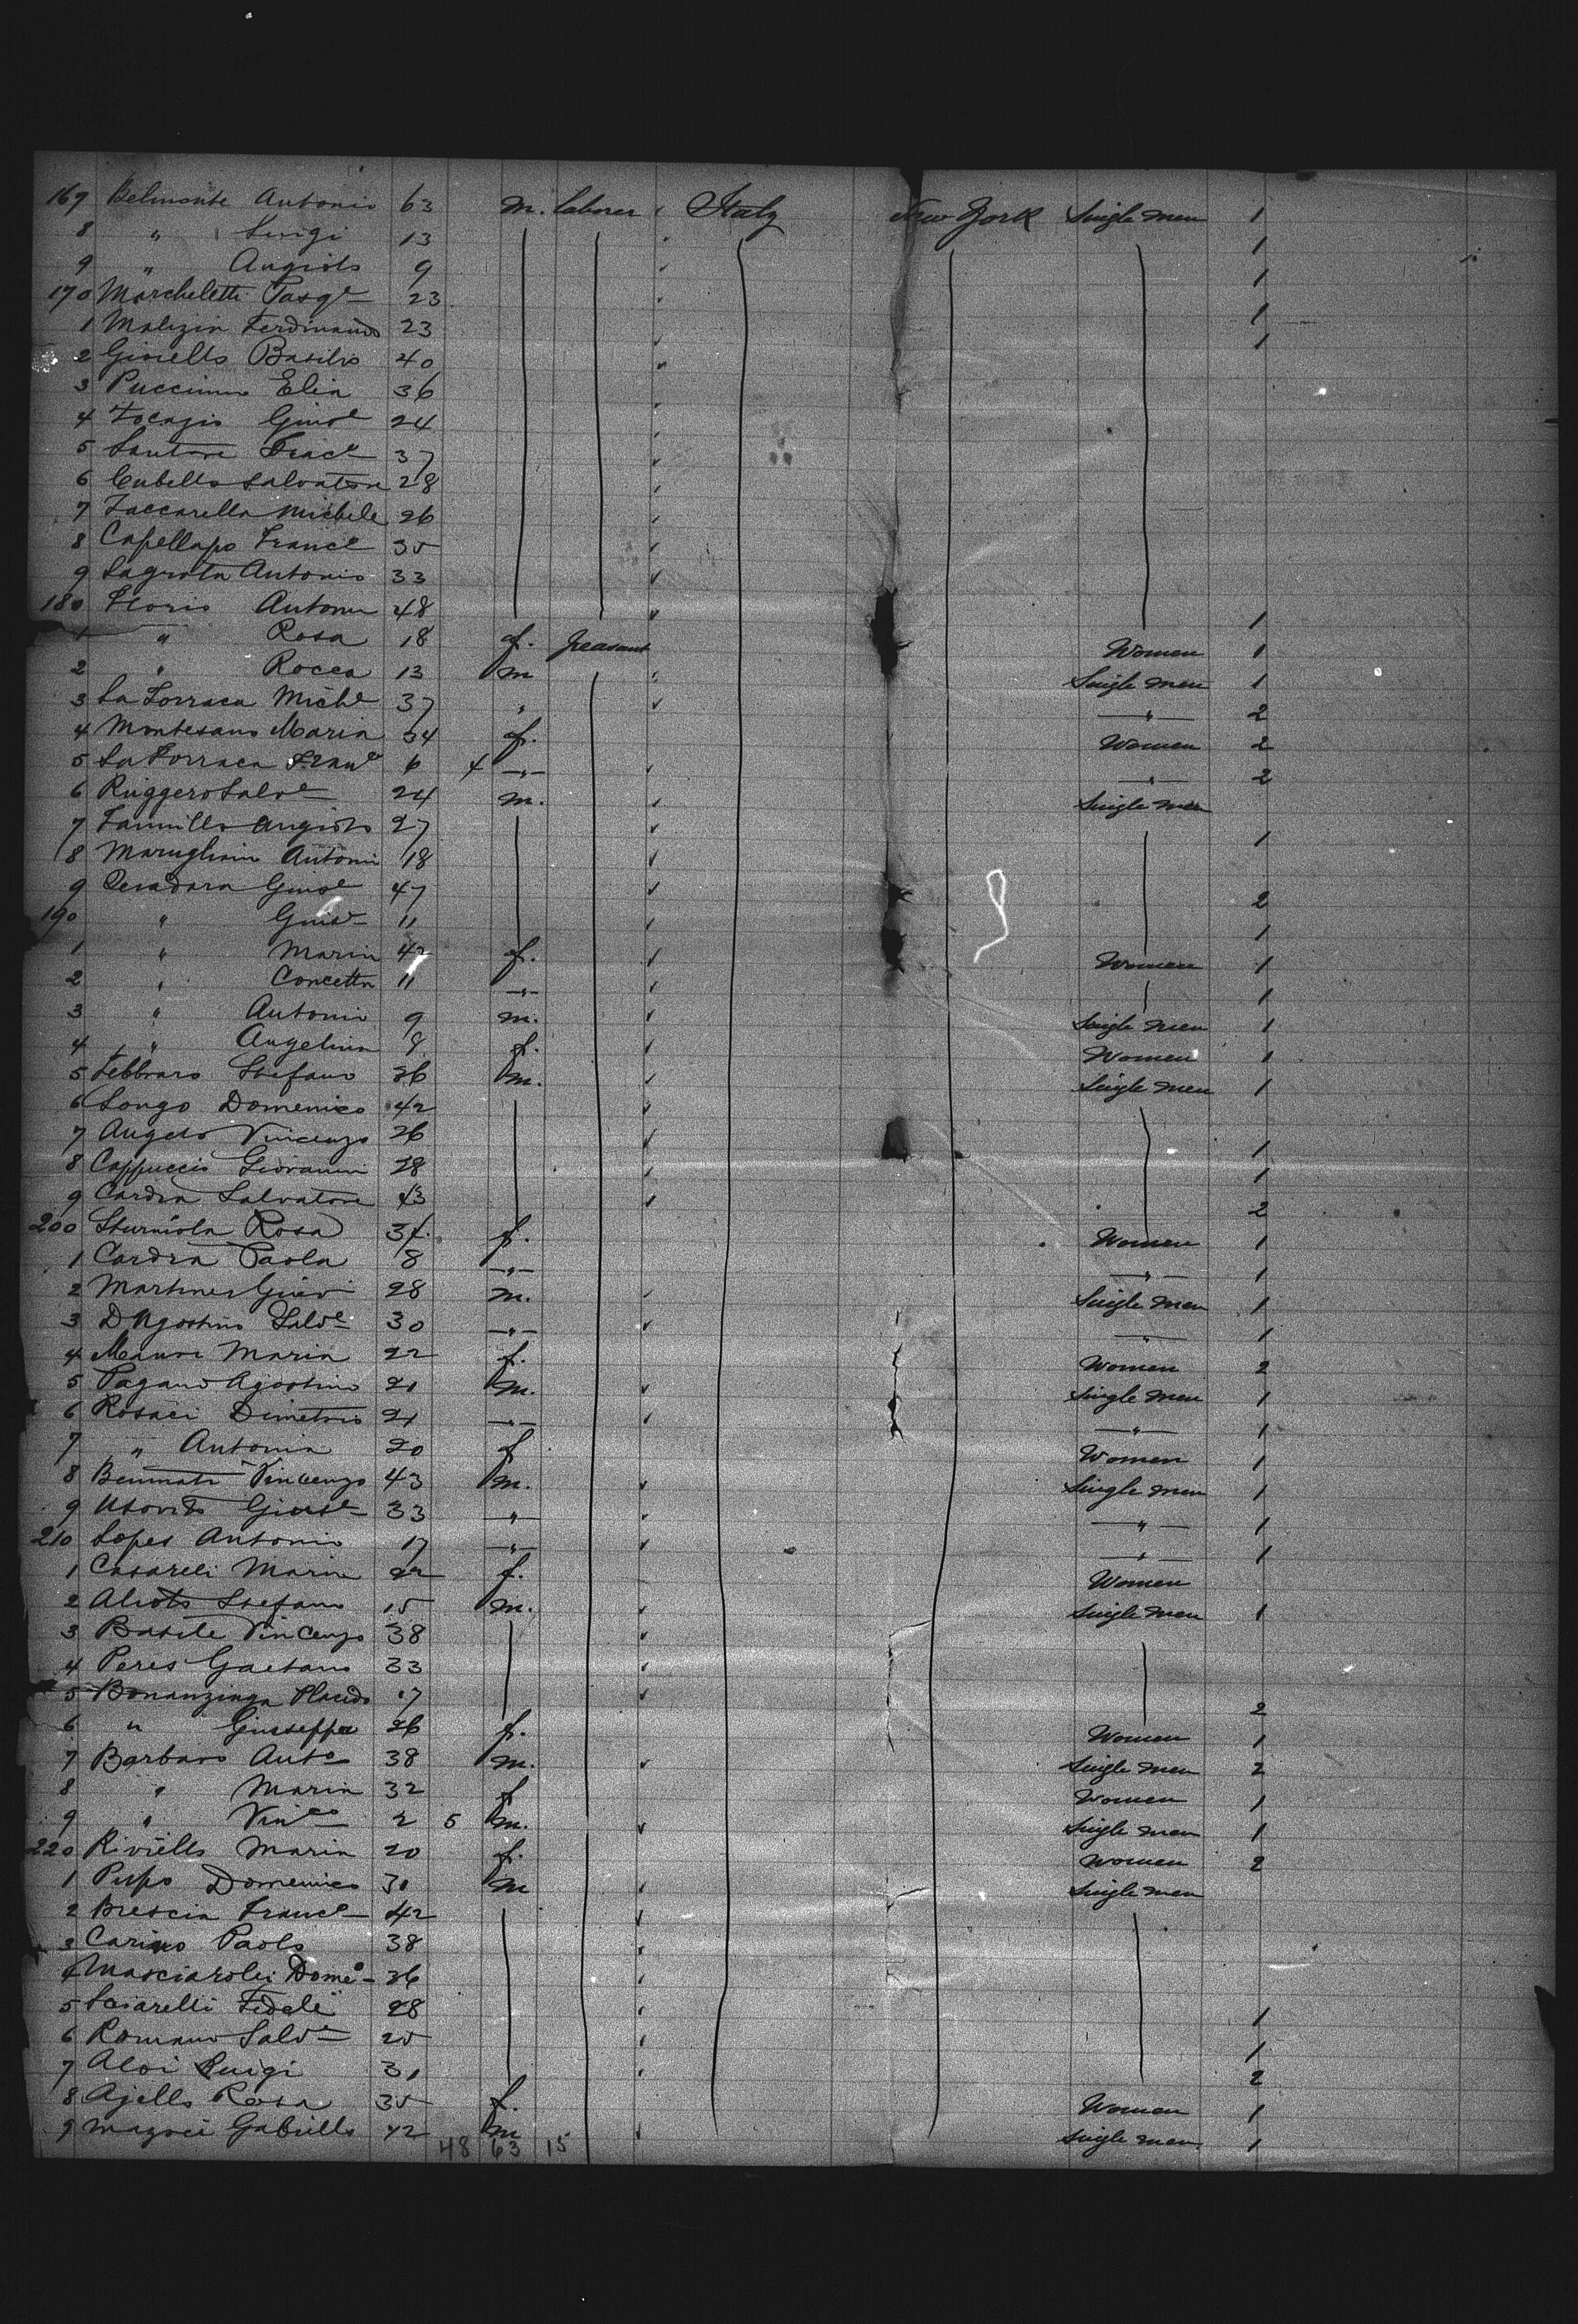 169 Belmonte Antonio 63 m. laborer Italy New York Single men 1
8 " Luigi 13 1
9 " Angiolo 9 1
170 Marcheletti Pasqe 23 1
1 Malizia Ferdinando 23 1
2 Gioiello Basilio 40
3 Puccinno Elia 36
4 Giuse 24
5 Santoro Frace 37
6 Cubello Salvatore 28
7 Zaccarella Michele 26
8 Capellapo France 35
9 Lagrota Antonio 33
180 Florio Antonio 48 1
1 " Rosa 18 f. peasant Women 1
2 " Rocco 13 m Single men 1
3 La Torraca Miche 37 " " 2
4 Montesano Maria 34 f. Women 2
5 La Torraca Frane 6 4 " " 2
6 Ruggero Salve 24 m. Single men
7 Iannillo Angiolo 27 1
8 Marugliani Antoni 18
9 Giuse 47 2
190 " Giuse 11 1
1 " Maria 42 f. Women 1
2 " Concetta 11 " 1
3 " Antonio 9 m. Single men 1
4 " Angelina 8 f. Women 1
5 Febbraro Stefano 26 m. Single men 1
6 Longo Domenico 42
7 Angelo Vincenzo 26 1
8 Cappuccio Giovanni 28 1
9 Cardia Salvatore 43 2
200 Sturniola Rosa 34 f. Women 1
1 Cardia Paola 8 " " 1
2 Martines 28 m. Single men 1
3 D'Agostino Salve 30 " " 1
4 Maria 22 f. Women 2
5 Pagano Agostino 21 m. Single men 1
6 Rosaci Dimetrio 21 " " 1
7 " Antonia 20 f Women 1
8 Bennati Vincenzo 43 m. Single men 1
9 Giuse 33 " " 1
210 Lopes Antonio 17 " " 1
1 Casareli Maria 22 f. Women
2 Alioto Stefano 15 m. Single men 1
3 Basile Vincenzo 38
4 Peres Gaetano 33
5 Bonanzinga Placido 17 2
6 " Giuseppa 26 f. Women 1
7 Barbaro Anto 38 m. Single men 2
8 " Maria 32 f Women 1
9 " Vinco 2 5 m. Single men 1
220 Riviello Maria 20 f. Women 2
1 Pupo Domenico 31 m Single men
2 Brescia France 42
3 Carino Paolo 38
4 Masciarolei Domeo 36
5 Sciarelli Fidele 28 1
6 Romano Salve 25 1
7 Aloi Luigi 31 2
8 Ajello Rosa 35 f. Women 1
9 Gabriello 42 m Single men 1
48 63 15